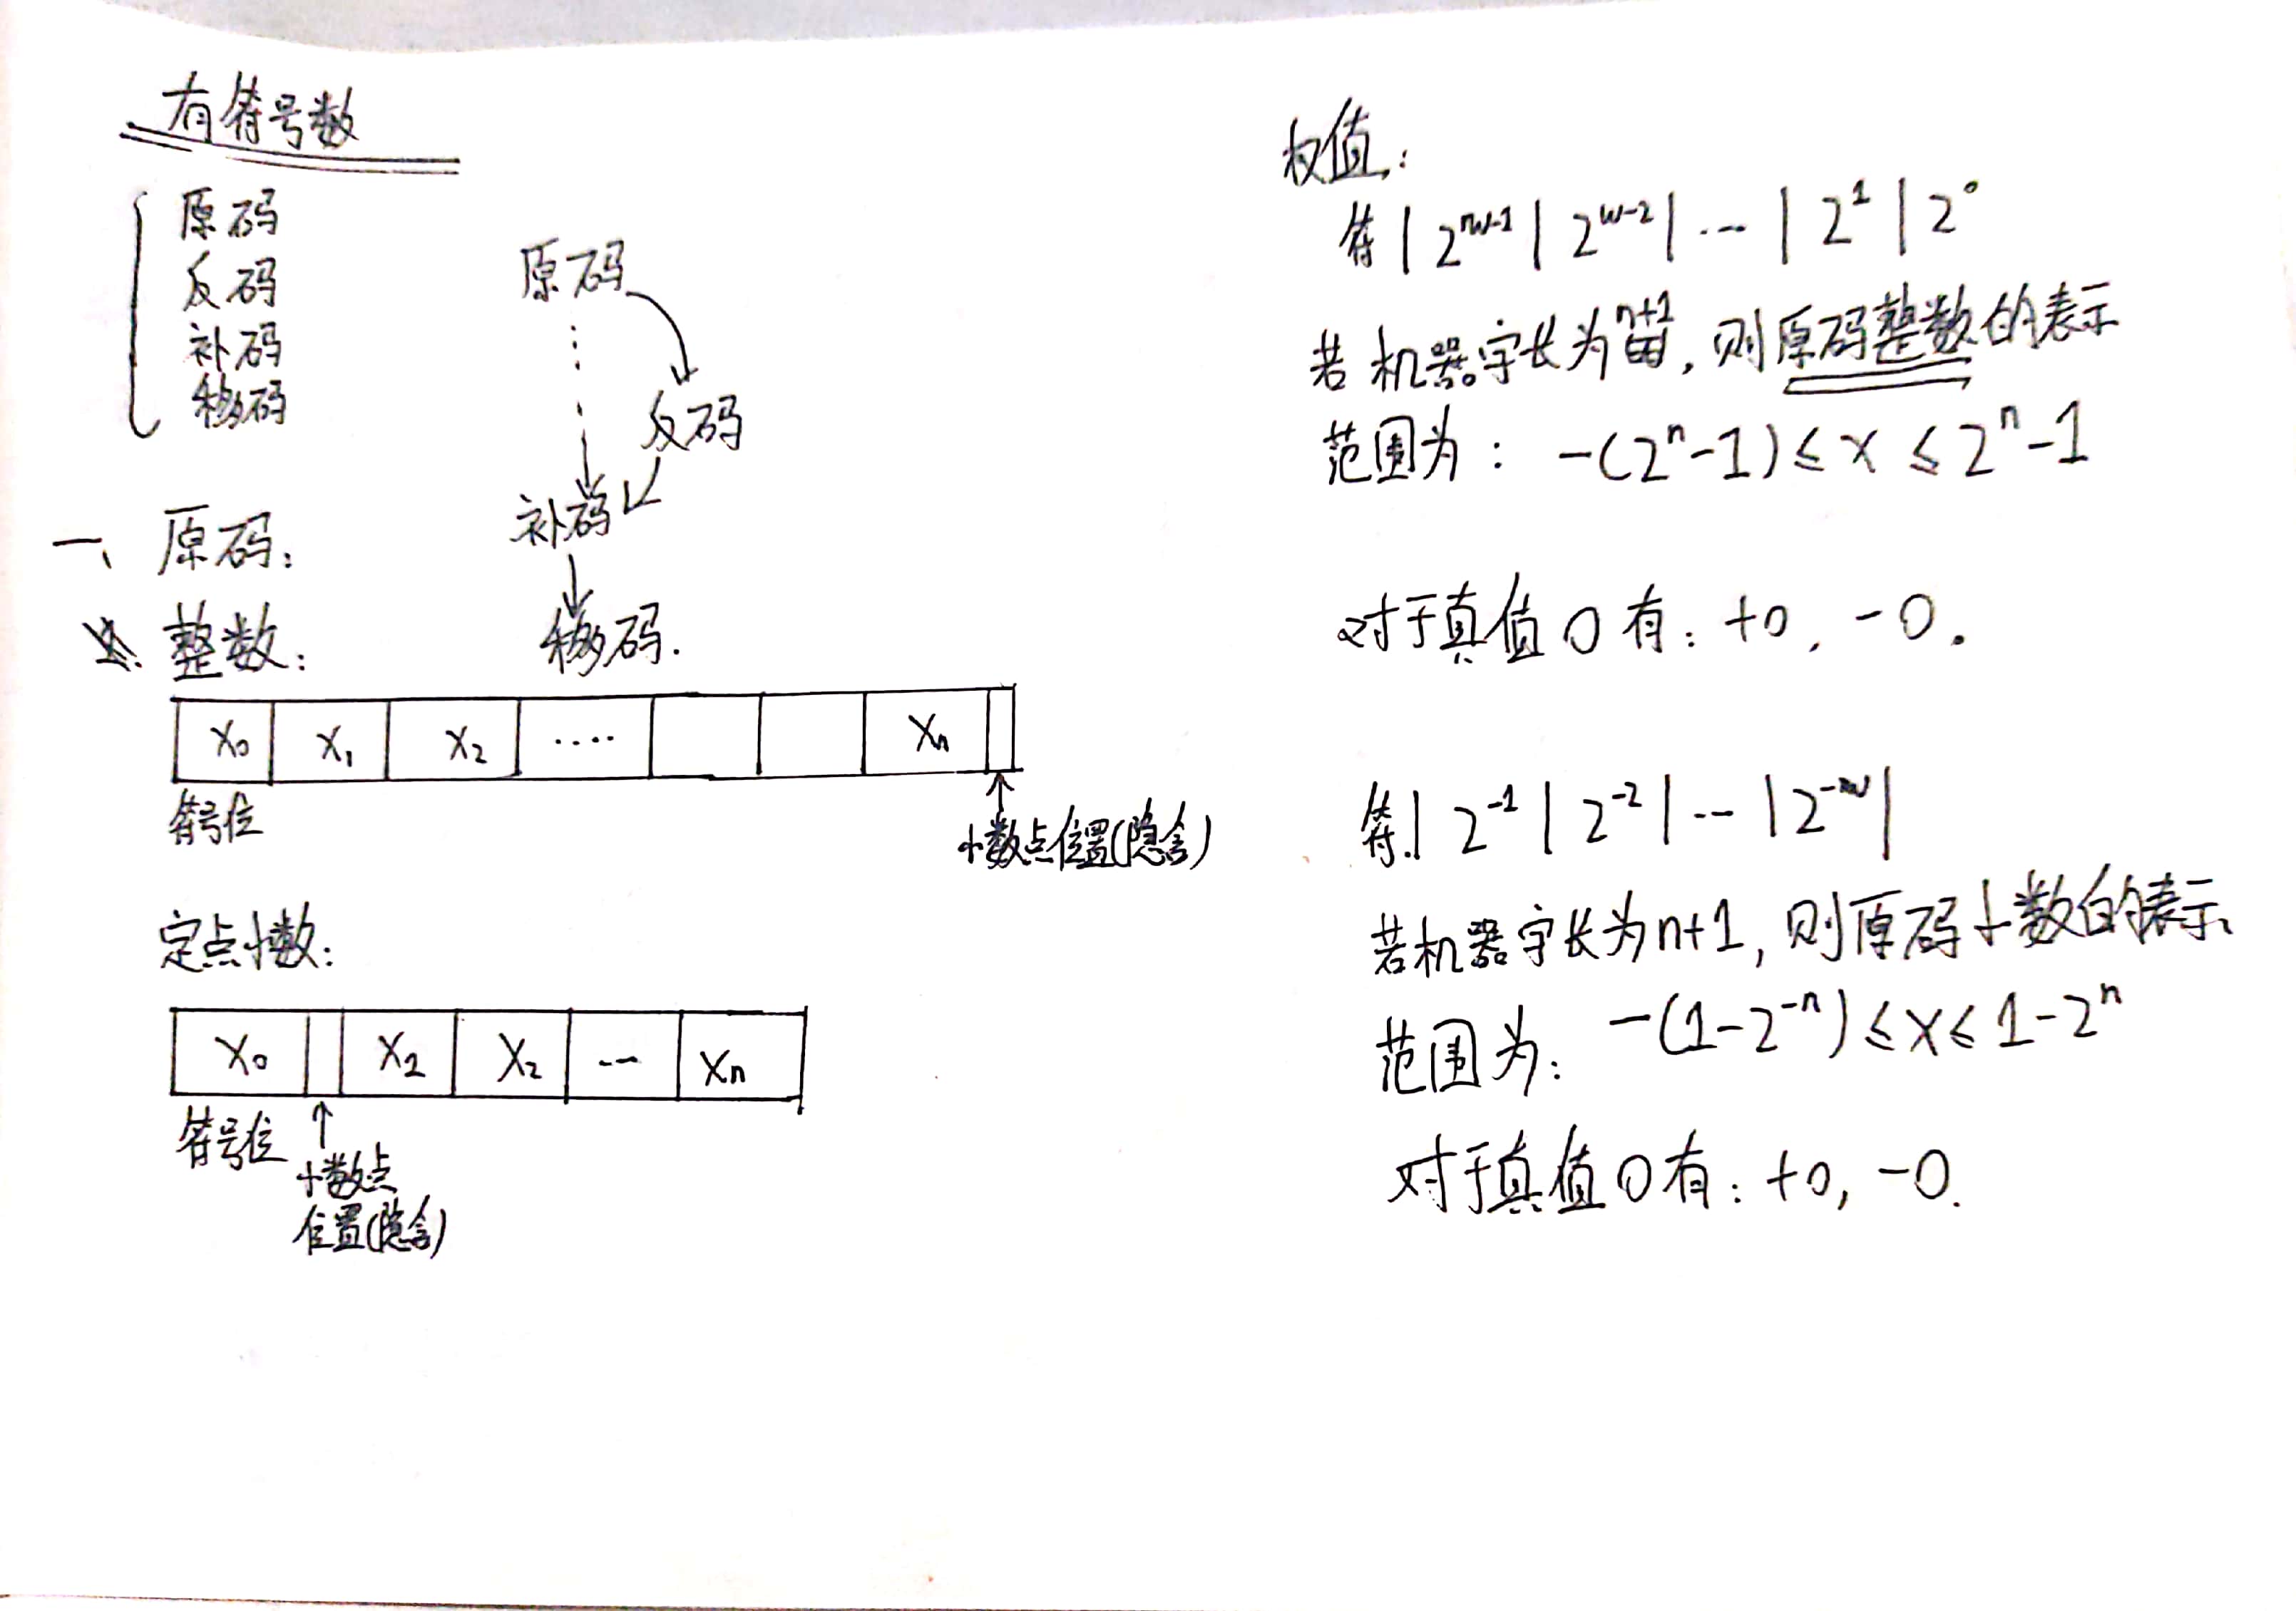 有符号数
原码
反码
补码
移码
原码
反码
补码
移码.
一、原码:
整数:
X₀ X₁ X₂ .... Xₙ
符号位
小数点位置(隐含)
定点小数:
X₀ X₁ X₂ ... Xₙ
符号位
小数点
位置(隐含)
权值:
符 | | 2ʷ⁻² | ... | 2¹ | 2⁰
若机器字长为n+1, 则原码整数的表示
范围为: -(2ⁿ-1) ≤ x ≤ 2ⁿ-1
对于真值0有: +0, -0.
符.| 2⁻¹ | 2⁻² | ... | |
若机器字长为n+1, 则原码小数的表示
范围为: -(1-2⁻ⁿ) ≤ x ≤ 1-2ⁿ
对于真值0有: +0, -0.